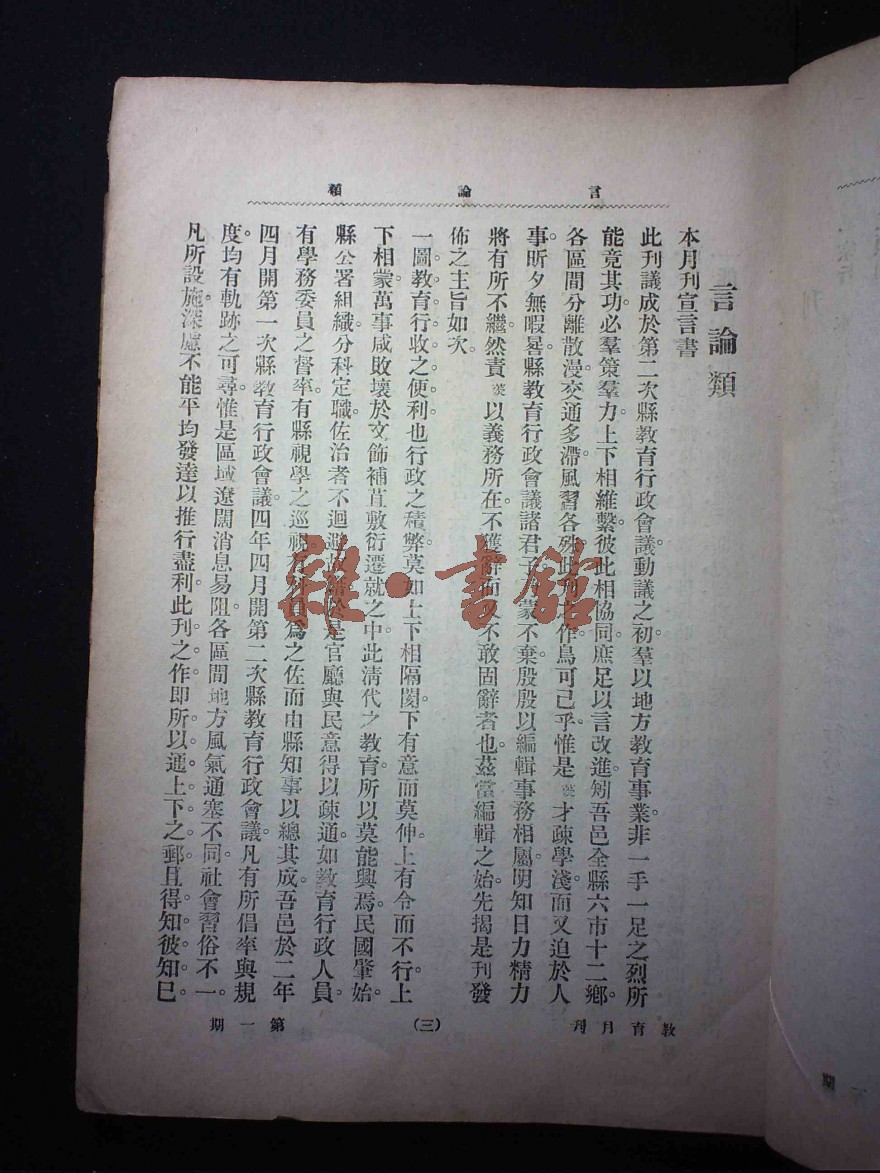 言論類
言論類
本月刊宣言書
此刊議成於第二次縣教育行政會議動議之初羣以地方教育事業非一手一足之烈所
能竟其功必羣策羣力上下相維繫彼此相協同庶足以言改進矧吾邑全縣六市十二鄉
各區間分離散漫交通多滯風習各殊此刊之作烏可已乎惟是 葵 才疎學淺而又迫於人
事昕夕無暇晷縣教育行政會議諸君子蒙不棄殷殷以編輯事務相屬明知日力精力
將有所不繼然責 葵 以義務所在不獲辭而又不敢固辭者也茲當編輯之始先揭是刊發
佈之主旨如次
一圖教育行收之便利也行政之積弊莫如上下相隔閡下有意而莫伸上有令而不行上
下相蒙萬事咸敗壞於文飾補苴敷衍遷就之中此清代之教育所以莫能興焉民國肇始
縣公署組織分科定職佐治者不迴避故籍於是官廳與民意得以疎通如教育行政人員
有學務委員之督率有縣視學之巡視有科員爲之佐而由縣知事以總其成吾邑於二年
四月開第一次縣教育行政會議四年四月開第二次縣教育行政會議凡有所倡率與規
度均有軌跡之可尋惟是區域遼闊消息易阻各區間地方風氣通塞不同社會習俗不一
凡所設施深慮不能平均發達以推行盡利此刊之作即所以通上下之郵且得知彼知巳
教育月刊
(三)
第一期
雜·書館
期